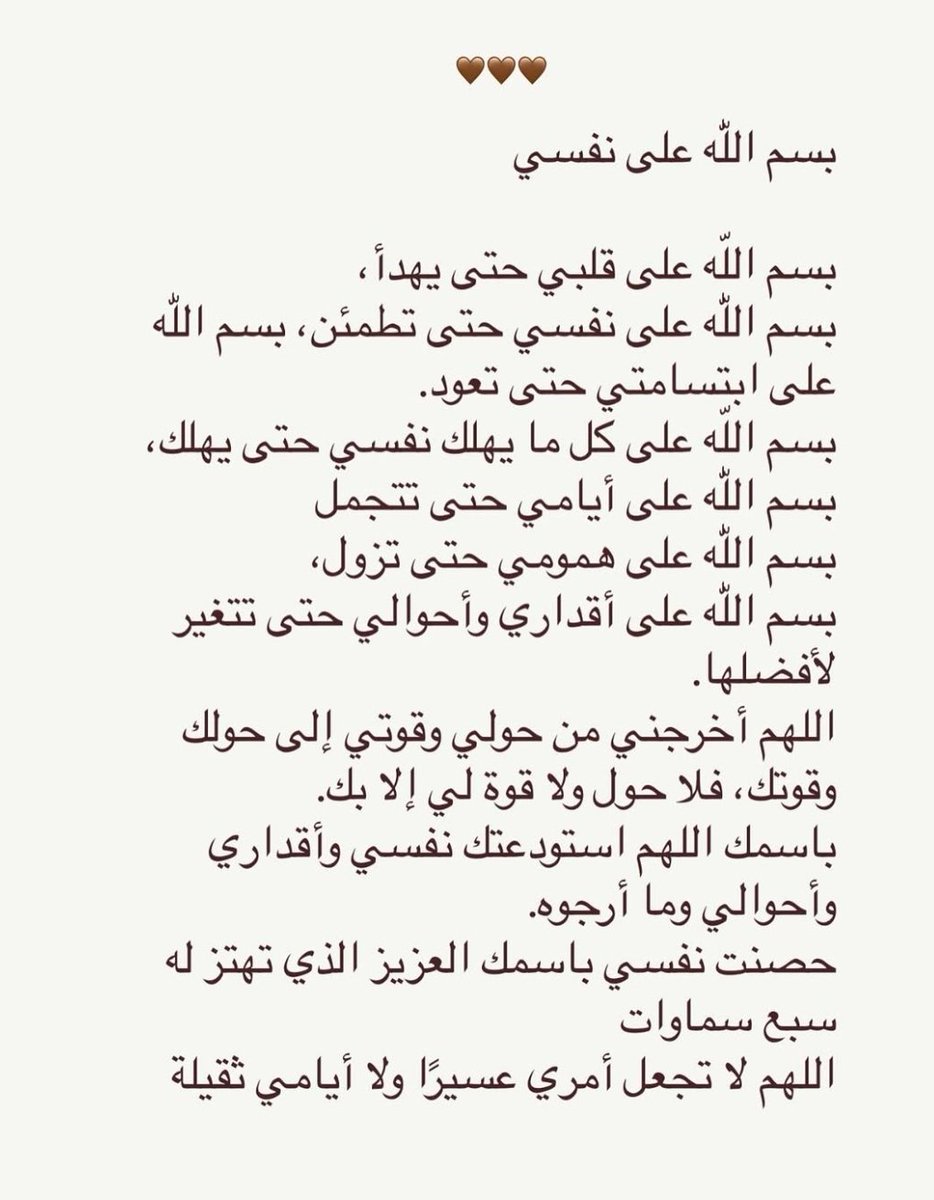 🤎🤎🤎
بسم الله على نفسي
بسم الله على قلبي حتى يهدأ،
بسم الله على نفسي حتى تطمئن، بسم الله
على ابتسامتي حتى تعود.
بسم الله على كل ما يهلك نفسي حتى يهلك،
بسم الله على أيامي حتى تتجمل
بسم الله على همومي حتى تزول،
بسم الله على أقداري وأحوالي حتى تتغير
لأفضلها.
اللهم أخرجني من حولي وقوتي إلى حولك
وقوتك، فلا حول ولا قوة لي إلا بك.
باسمك اللهم استودعتك نفسي وأقداري
وأحوالي وما أرجوه.
حصنت نفسي باسمك العزيز الذي تهتز له
سبع سماوات
اللهم لا تجعل أمري عسيرًا ولا أيامي ثقيلة